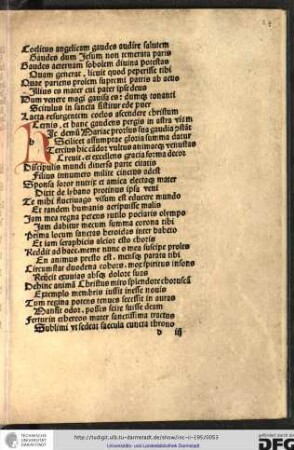 Coelitus angelicam gaudes audire salutem
Gaudes dum Jesum non temerata paris
Gaudes aeternam sobolem diuina potestas
Quam generat, licuit quod peperisse tibi
Quae pariens prolem supremi patris ab actu
Illius es mater cui pater ipse deus
Dum venere magi gauisa es: dumq; tonanti
Scitulus in sancta sistitur ede puer
Laeta resurgentem coelos ascendere christum
Cernis, et hanc gaudens pergis in astra viam
Hic demū Mariae prorsus sua gaudia
Scilicet assumptae gloria summa datur
Tercius hic cādor vultus animaeq; venustas
Creuit, et excellens gracia forma decor
Discipulis mundi diuersa parte citatis
Filius innumero milite cinctus adest
Sponsa soror nutrix et amica electaq; mater
Dixit de lybano protinus ipsa veni
Te mihi fluctiuago visum est educere mundo
Et tandem humanis aeripuisse malis
Jam mea regna petens rutilo pociaris olympo
Jam dabitur mecum summa corona tibi
Prima locum sanctas heroidas inter habeto
Et iam seraphicis altior esto choris
Reddit ad haec. meme nunc o mea suscipe proles
En animus presto est. mensq; parata tibi
Circumstat duodena cohors. mox spiritus insons
Reiicit exuuias absq; dolore suas
Dehinc animā Christus miro splendore choruscā
Exemplo membris iussit inesse nouis
Tum regina potens tenues secessit in auras
Mansit odor, possis scire fuisse deam
Fertur in ethereos mater sanctissima tractus
Sublimi vt sedeat saecula cuncta throno
d iij
TECHNISCHE UNIVERSITÄT DARMSTADT
http://tudigit.ulb.tu-darmstadt.de/show/inc-ii-195/0053
Universitäts- und Landesbibliothek Darmstadt
gefördert durch die
DFG